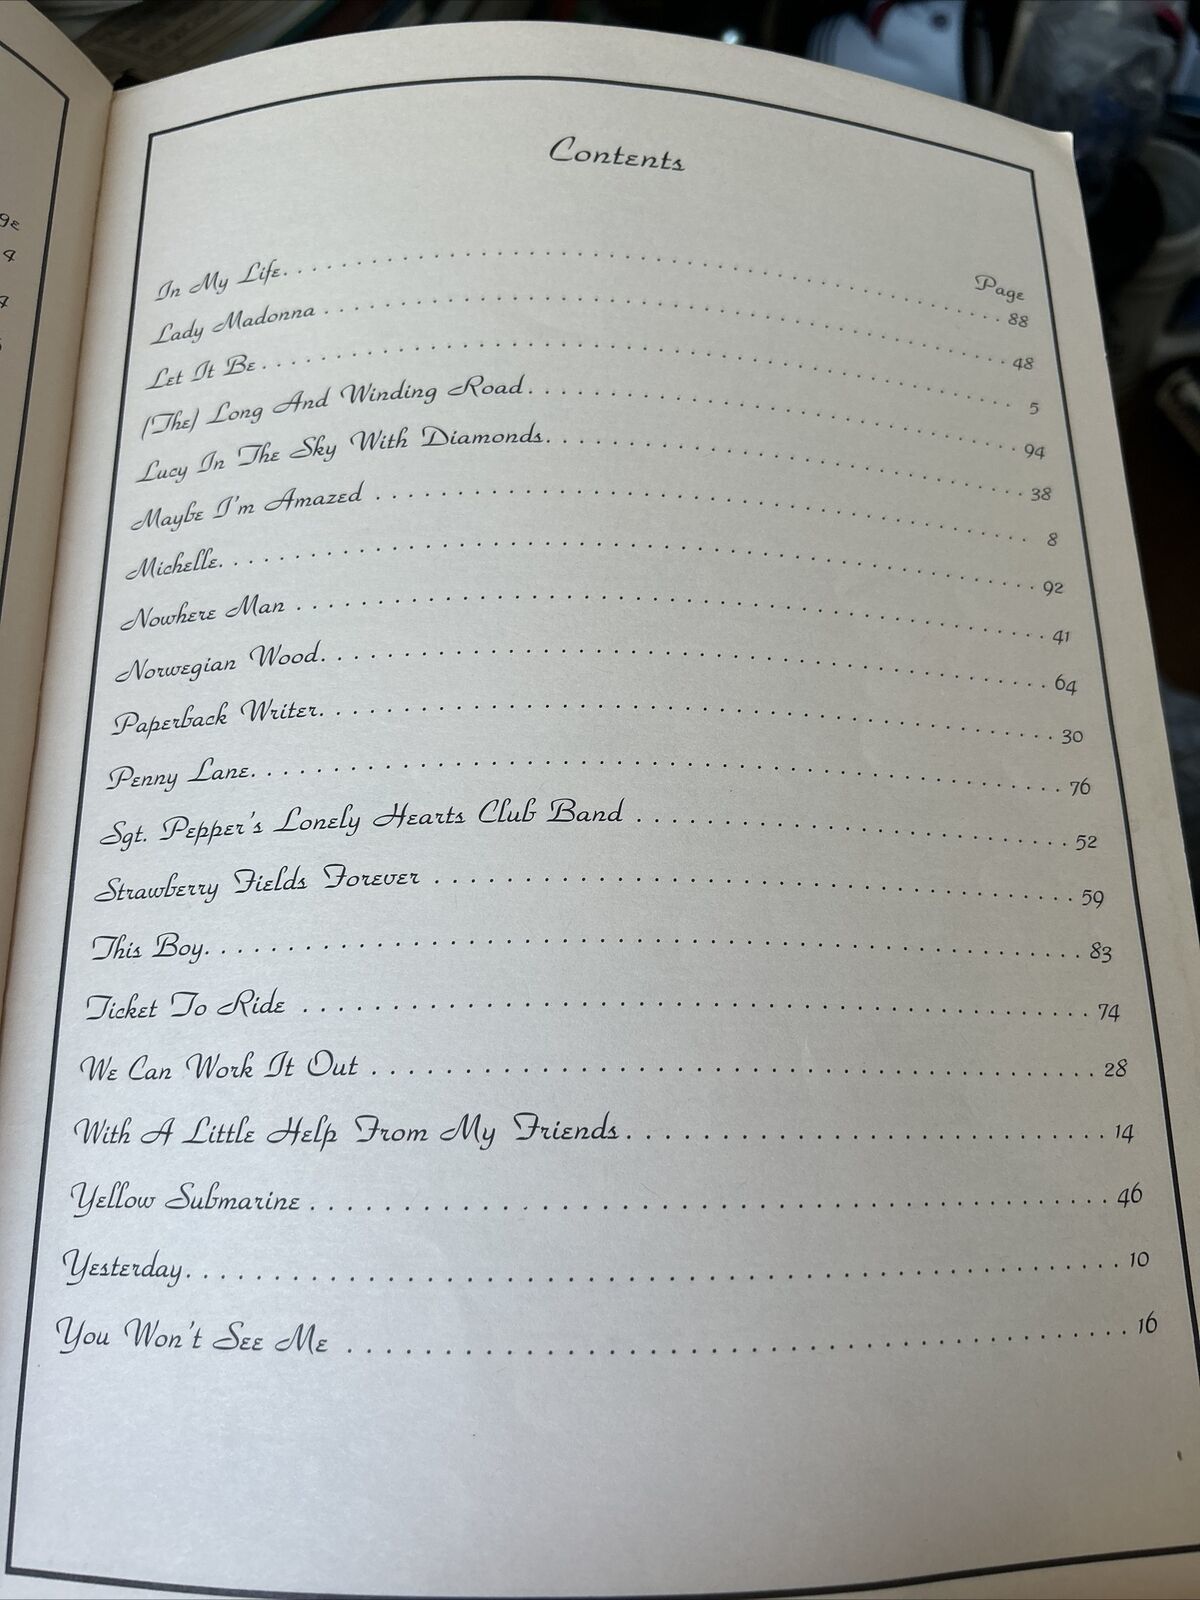 Contents
Page
In My Life. . . . . . . . . . . . . . . . . . . . . . . . . . . . . . . . . . . . . . . . 88
Lady Madonna . . . . . . . . . . . . . . . . . . . . . . . . . . . . . . . . . . . . . . 48
Let It Be . . . . . . . . . . . . . . . . . . . . . . . . . . . . . . . . . . . . . . . . 5
(The) Long And Winding Road . . . . . . . . . . . . . . . . . . . . . . . . . . . . . 94
Lucy In The Sky With Diamonds. . . . . . . . . . . . . . . . . . . . . . . . . . . . 38
Maybe I'm Amazed . . . . . . . . . . . . . . . . . . . . . . . . . . . . . . . . . . . 8
Michelle. . . . . . . . . . . . . . . . . . . . . . . . . . . . . . . . . . . . . . . . 92
Nowhere Man . . . . . . . . . . . . . . . . . . . . . . . . . . . . . . . . . . . . . . 41
Norwegian Wood. . . . . . . . . . . . . . . . . . . . . . . . . . . . . . . . . . . . 64
Paperback Writer. . . . . . . . . . . . . . . . . . . . . . . . . . . . . . . . . . . . 30
Penny Lane. . . . . . . . . . . . . . . . . . . . . . . . . . . . . . . . . . . . . . . 76
Sgt. Pepper's Lonely Hearts Club Band . . . . . . . . . . . . . . . . . . . . . . 52
Strawberry Fields Forever . . . . . . . . . . . . . . . . . . . . . . . . . . . . . . 59
This Boy. . . . . . . . . . . . . . . . . . . . . . . . . . . . . . . . . . . . . . . . 83
Ticket To Ride . . . . . . . . . . . . . . . . . . . . . . . . . . . . . . . . . . . . 74
We Can Work It Out . . . . . . . . . . . . . . . . . . . . . . . . . . . . . . . . . 28
With A Little Help From My Friends. . . . . . . . . . . . . . . . . . . . . . . 14
Yellow Submarine . . . . . . . . . . . . . . . . . . . . . . . . . . . . . . . . . . . 46
Yesterday. . . . . . . . . . . . . . . . . . . . . . . . . . . . . . . . . . . . . . . . 10
You Won't See Me . . . . . . . . . . . . . . . . . . . . . . . . . . . . . . . . . . . 16